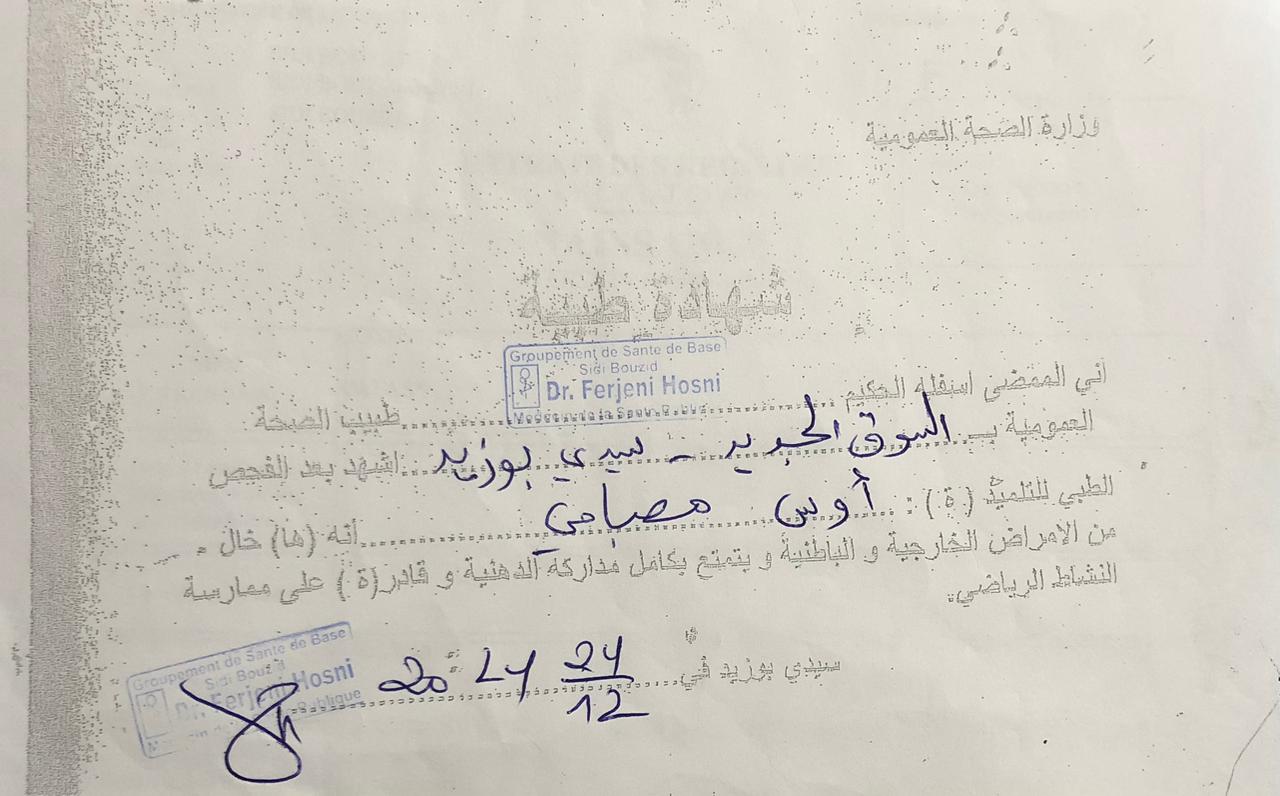 وزارة الصحة العمومية
شهادة طبية
Groupement de Sante de Base
Sidi Bouzid
Dr. Ferjeni Hosni
Medecin de la Sante Publique
اني الممضي اسفله الحكيم ........ طبيب الصحة
العمومية بـ السوق الجديد - سيدي بوزيد اشهد بعد الفحص
الطبي للتلميذ (ة) : أوس مصباحي انه (ها) خال
من الامراض الخارجية و الباطنية و يتمتع بكامل مداركه الذهنية و قادر(ة) على ممارسة
النشاط الرياضي.
سيدي بوزيد في 24/12 2024
Groupement de Sante de Base
Sidi Bouzid
Dr. Ferjeni Hosni
Medecin de la Publique